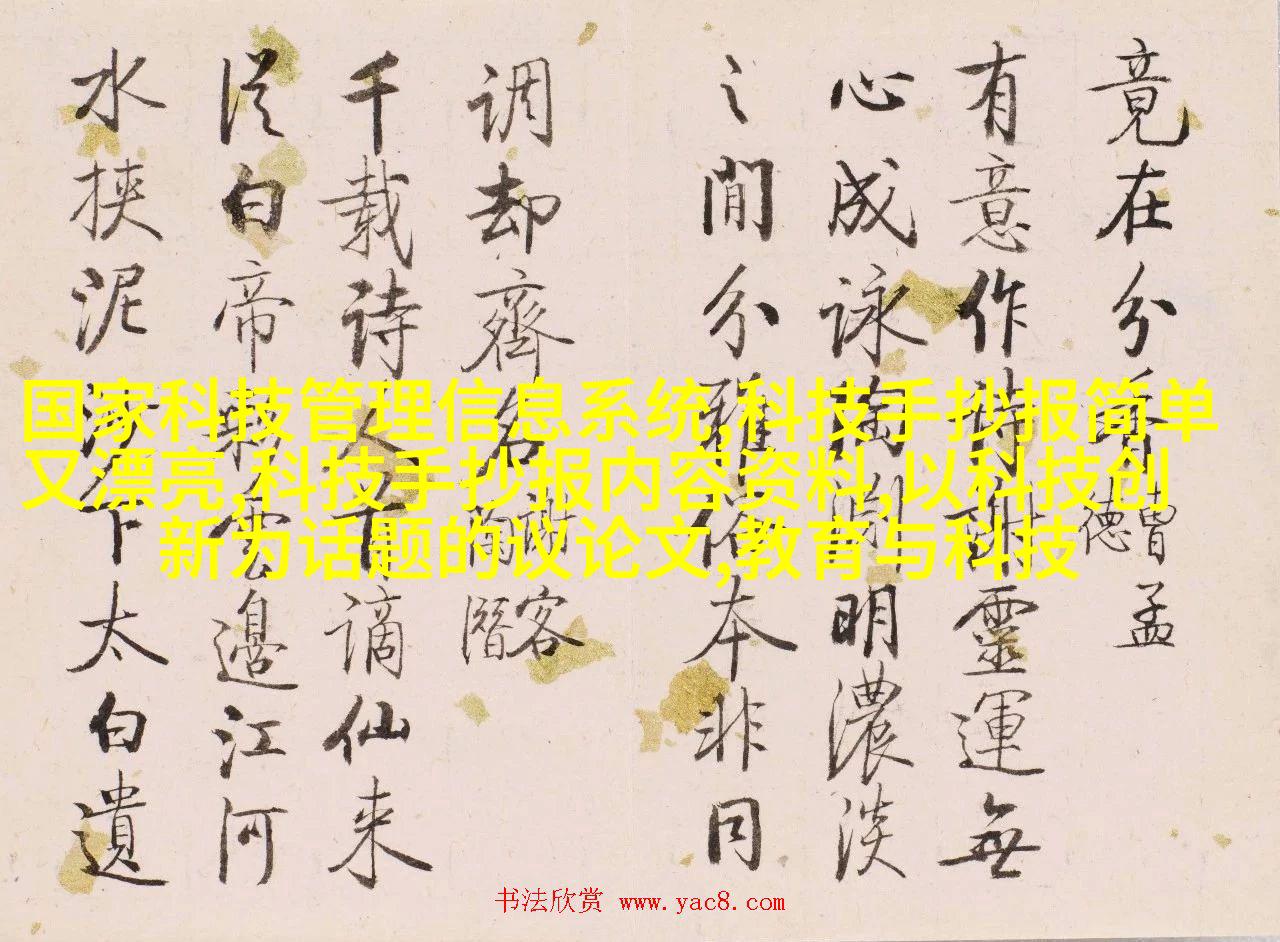 竟在分
孟
德
有意作诗谢靈運無
心成詠陶渊明濃淡
之間分雅俗本非同
调却齊名
客
潛
千载诗人下谪仙来
從白帝彩雲邉江河
水挟泥沙下太白遺
国家科技管理信息系统,科技手抄报简单
又漂亮,科技手抄报内容资料,以科技创
新为话题的议论文,教育与科技
书法欣赏 www.yac8.com